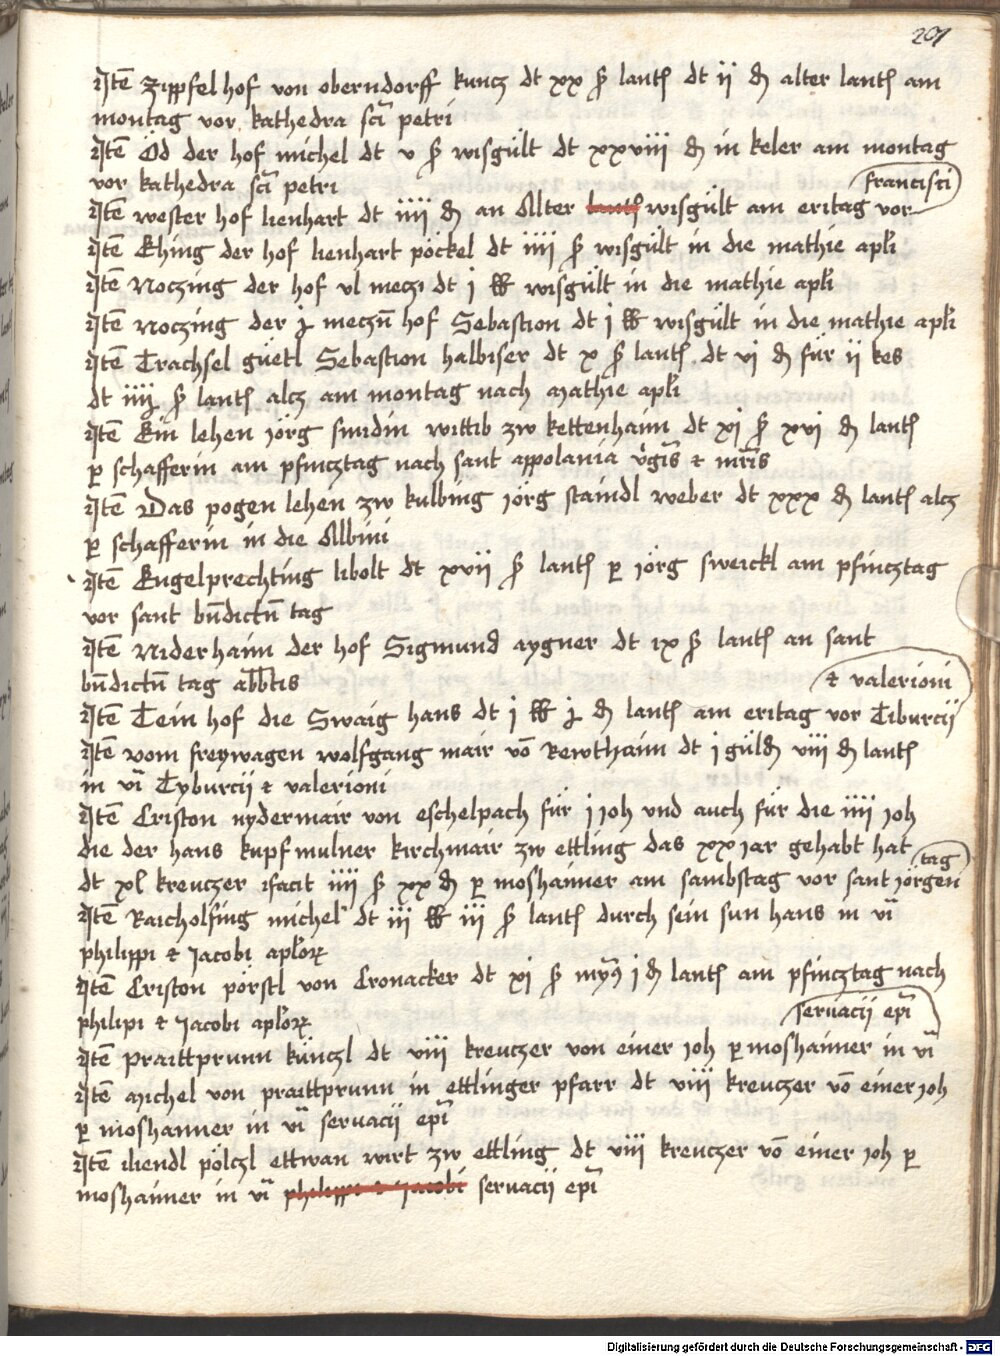 201
Itē zippfel hof von oberndorff kuncz dt xx ß lantß dt ij ₰ alter lantß am
montag vor kathedra sci petri
Itē Öd der hof michel dt v ß wisgült dt xxviii ₰ in keler am montag
vor kathedra sci petri
francisci
Itē wester hof lienhart dt iiij ₰ an Alter lantß wisgült am eritag vor
Itē Ehing der hof lienhart pöckel dt iiij ß wisgült in die mathie apli
Itē Noczing der hof vl meczi dt j lb wisgült in die mathie apli
Itē noczing der meczn hof Sebastion dt j lb wisgült in die mathie apli
Itē Trachsel güetl Sebastion halbiser dt x ß lantß dt vj ₰ für ij kes
dt iiij ß lantß alcz am montag nach mathie apli
Itē Ein lehen jörg smidin wittib zw kettenhaim dt xj ß xvj ₰ lantß
p schafferin am pfincztag nach sant appolania vgis et mris
Itē Das pogen lehen zw kulbing jörg staindl weber dt xxx ₰ lantß alcz
p schafferin in die Albini
Itē Engelprechting libolt dt xvij ß lantß p jörg sweickl am pfincztag
vor sant bndictn tag
Itē Niderhaim der hof Sigmund aygner dt ix ß lantß an sant
bndictn tag abbtis
et valerioni
Itē Tein hof die Swaig hans dt j lb ₰ lantß am eritag vor Tiburcij
Itē vom freywagen wolfgang mair vō Rewthaim dt j güld viij ₰ lantß
in vi Tyburcij et valerioni
Itē Criston nydermair von eschelpach für j joh vnd auch für die iiij joh
die der hans kupfmulner kirchmair zw ettling das xx jar gehabt hat
tag
dt xl kreuczer facit iiij ß xx ₰ p moshaimer am sambstag vor sant jörgen
Itē Raicholfing michel dt iij lb iij ß lantß durch sein sun hans in vi
philippi et Jacobi aplorz
Itē Criston pörstl von Cronacker dt xj ß j ₰ lantß am pfincztag nach
philipi et Jacobi aplorz
seruacij epi
Itē Praittprunn künczl dt viij kreuczer von einer joh p moshaimer in vi
Itē michel von praittprunn in ettlinger pfarr dt viij kreuczer vō einer joh
p moshaimer in vi seruacij epi
Itē liendl pölczl ettwan wirt zw ettling dt viij kreuczer vō einer joh p
moshaimer in vi philippi et Jacobi seruacij epi
Digitalisierung gefördert durch die Deutsche Forschungsgemeinschaft - DFG